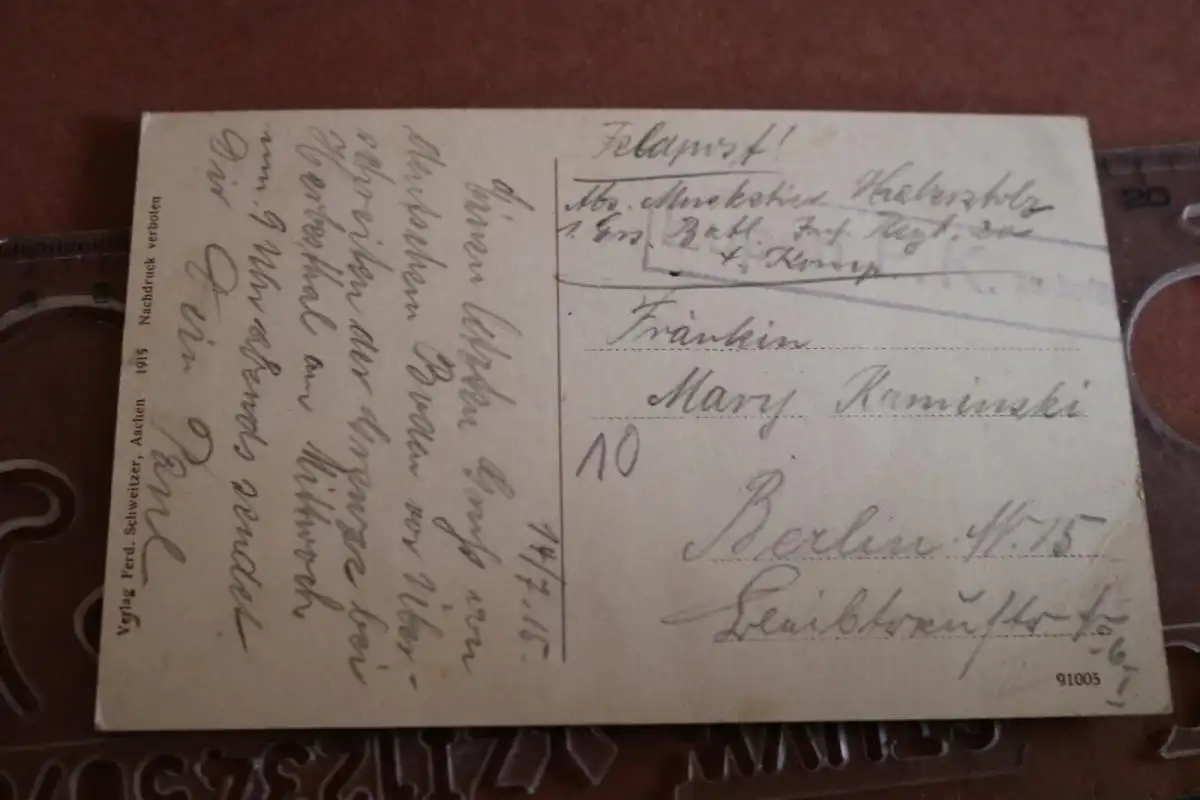 Feldpost!
Abs. Musketier Haberstolz
1. Ers. Batl. Inf. Regt.
4. Komp.
Fräulein
Mary Kaminski
10
Berlin W. 15
91005
14/7.15.
Einen letzten Gruß von
deutschem Boden vor Über-
schreiten der Grenze bei
Herbesthal am Mittwoch
um 9 Uhr abends sendet
Dir Dein Paul
Verlag Ferd. Schweitzer, Aachen 1915 Nachdruck verboten
20